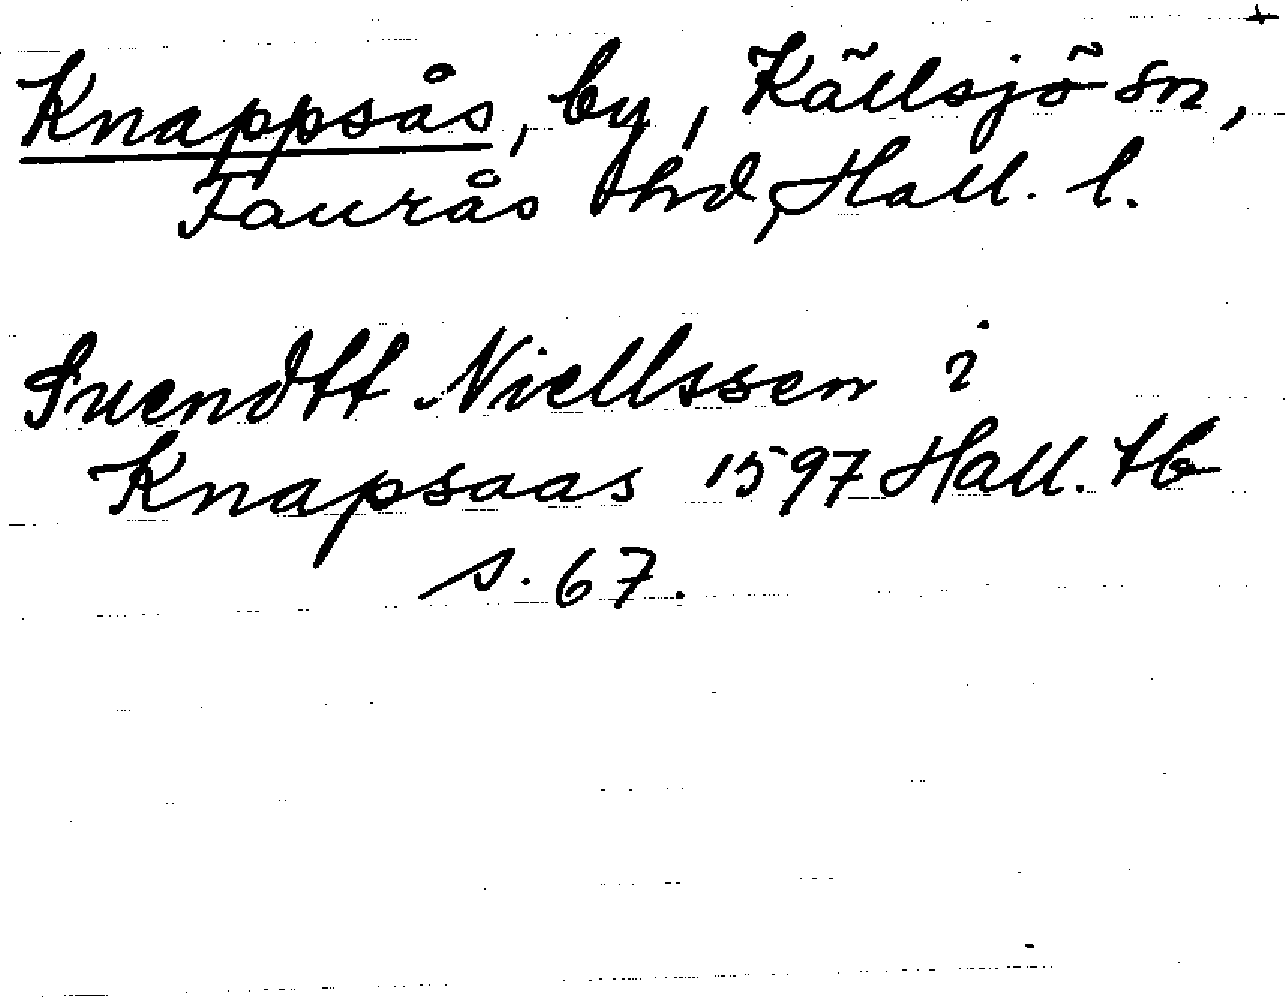 Knappsås, by, Källsjö sn,
Faurås hd, Hall. l.
Svendtt Niellssen i
Knapsaas 1597 Hall. tb
s. 67.